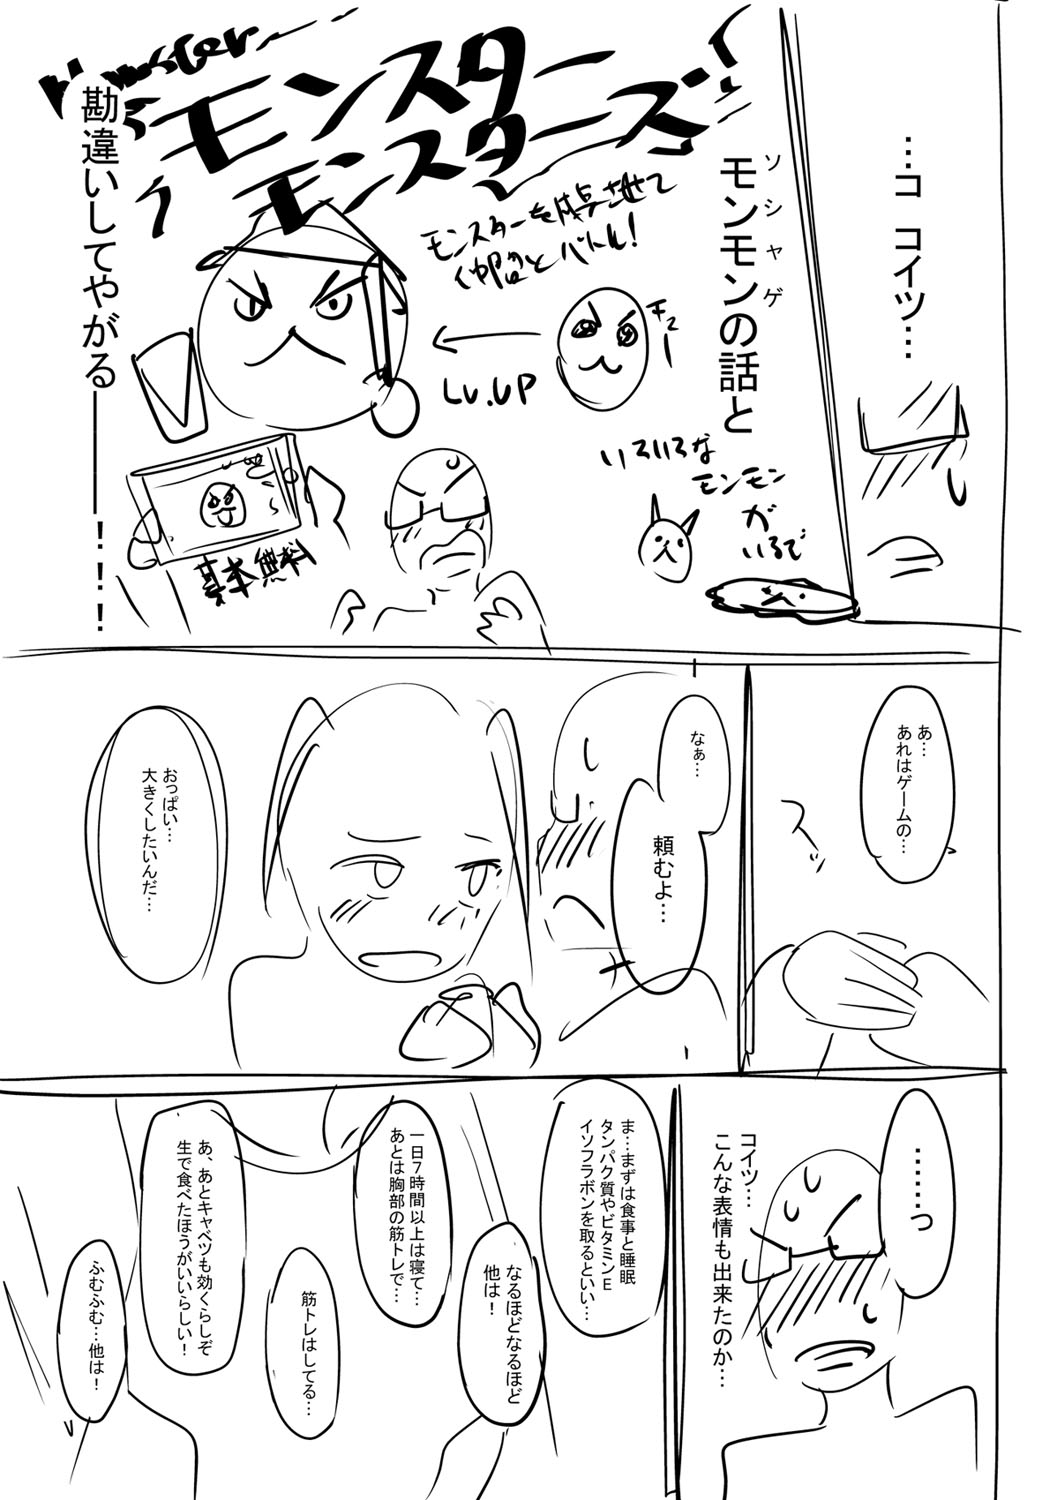 …コ コイツ…
ソシャゲ
モンモンの話と
勘違いしてやがる――――！！！
モンスター
モンスターズ！
モンスターを成長させて
仲間とバトル！
チュー
Lv.UP
いろいろな
モンモン
が
いるで
基本無料
あ…
あれはゲームの…
スッ
なぁ…
頼むよ…
おっぱい…
大きくしたいんだ…
……っ
コイツ…
こんな表情も出来たのか…
ま…まずは食事と睡眠
タンパク質やビタミンE
イソフラボンを取るといい…
なるほどなるほど
他は！
一日7時間以上は寝て…
あとは胸部の筋トレで…
筋トレはしてる…
あ、あとキャベツも効くらしぞ
生で食べたほうがいいらしい！
ふむふむ…他は！